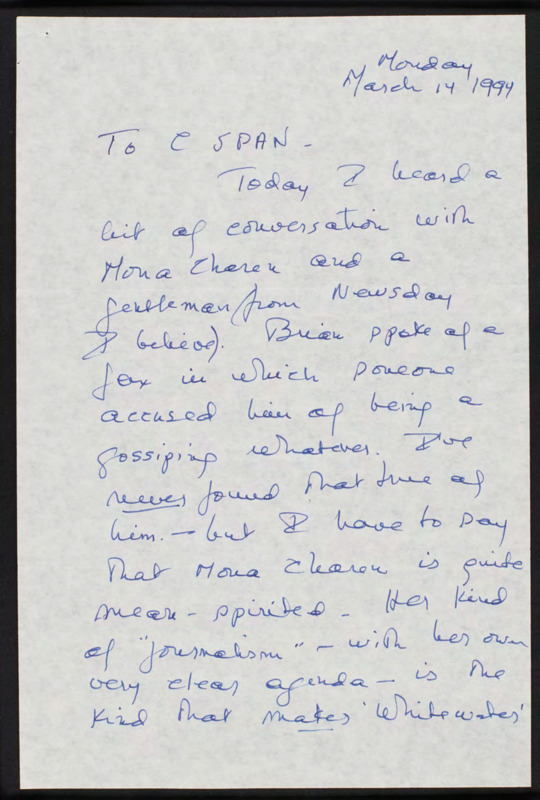 Monday
March 14 1994
To C SPAN -
Today I heard a
bit of conversation with
Mona Charen and a
gentleman (from Newsday
I believe). Brian spoke of a
fax in which someone
accused him of being a
gossiping whatever. I've
never found that true of
him. — but I have to say
that Mona Charen is quite
mean-spirited. Her kind
of "journalism" — with her own
very clear agenda — is the
kind that makes 'Whitewater'